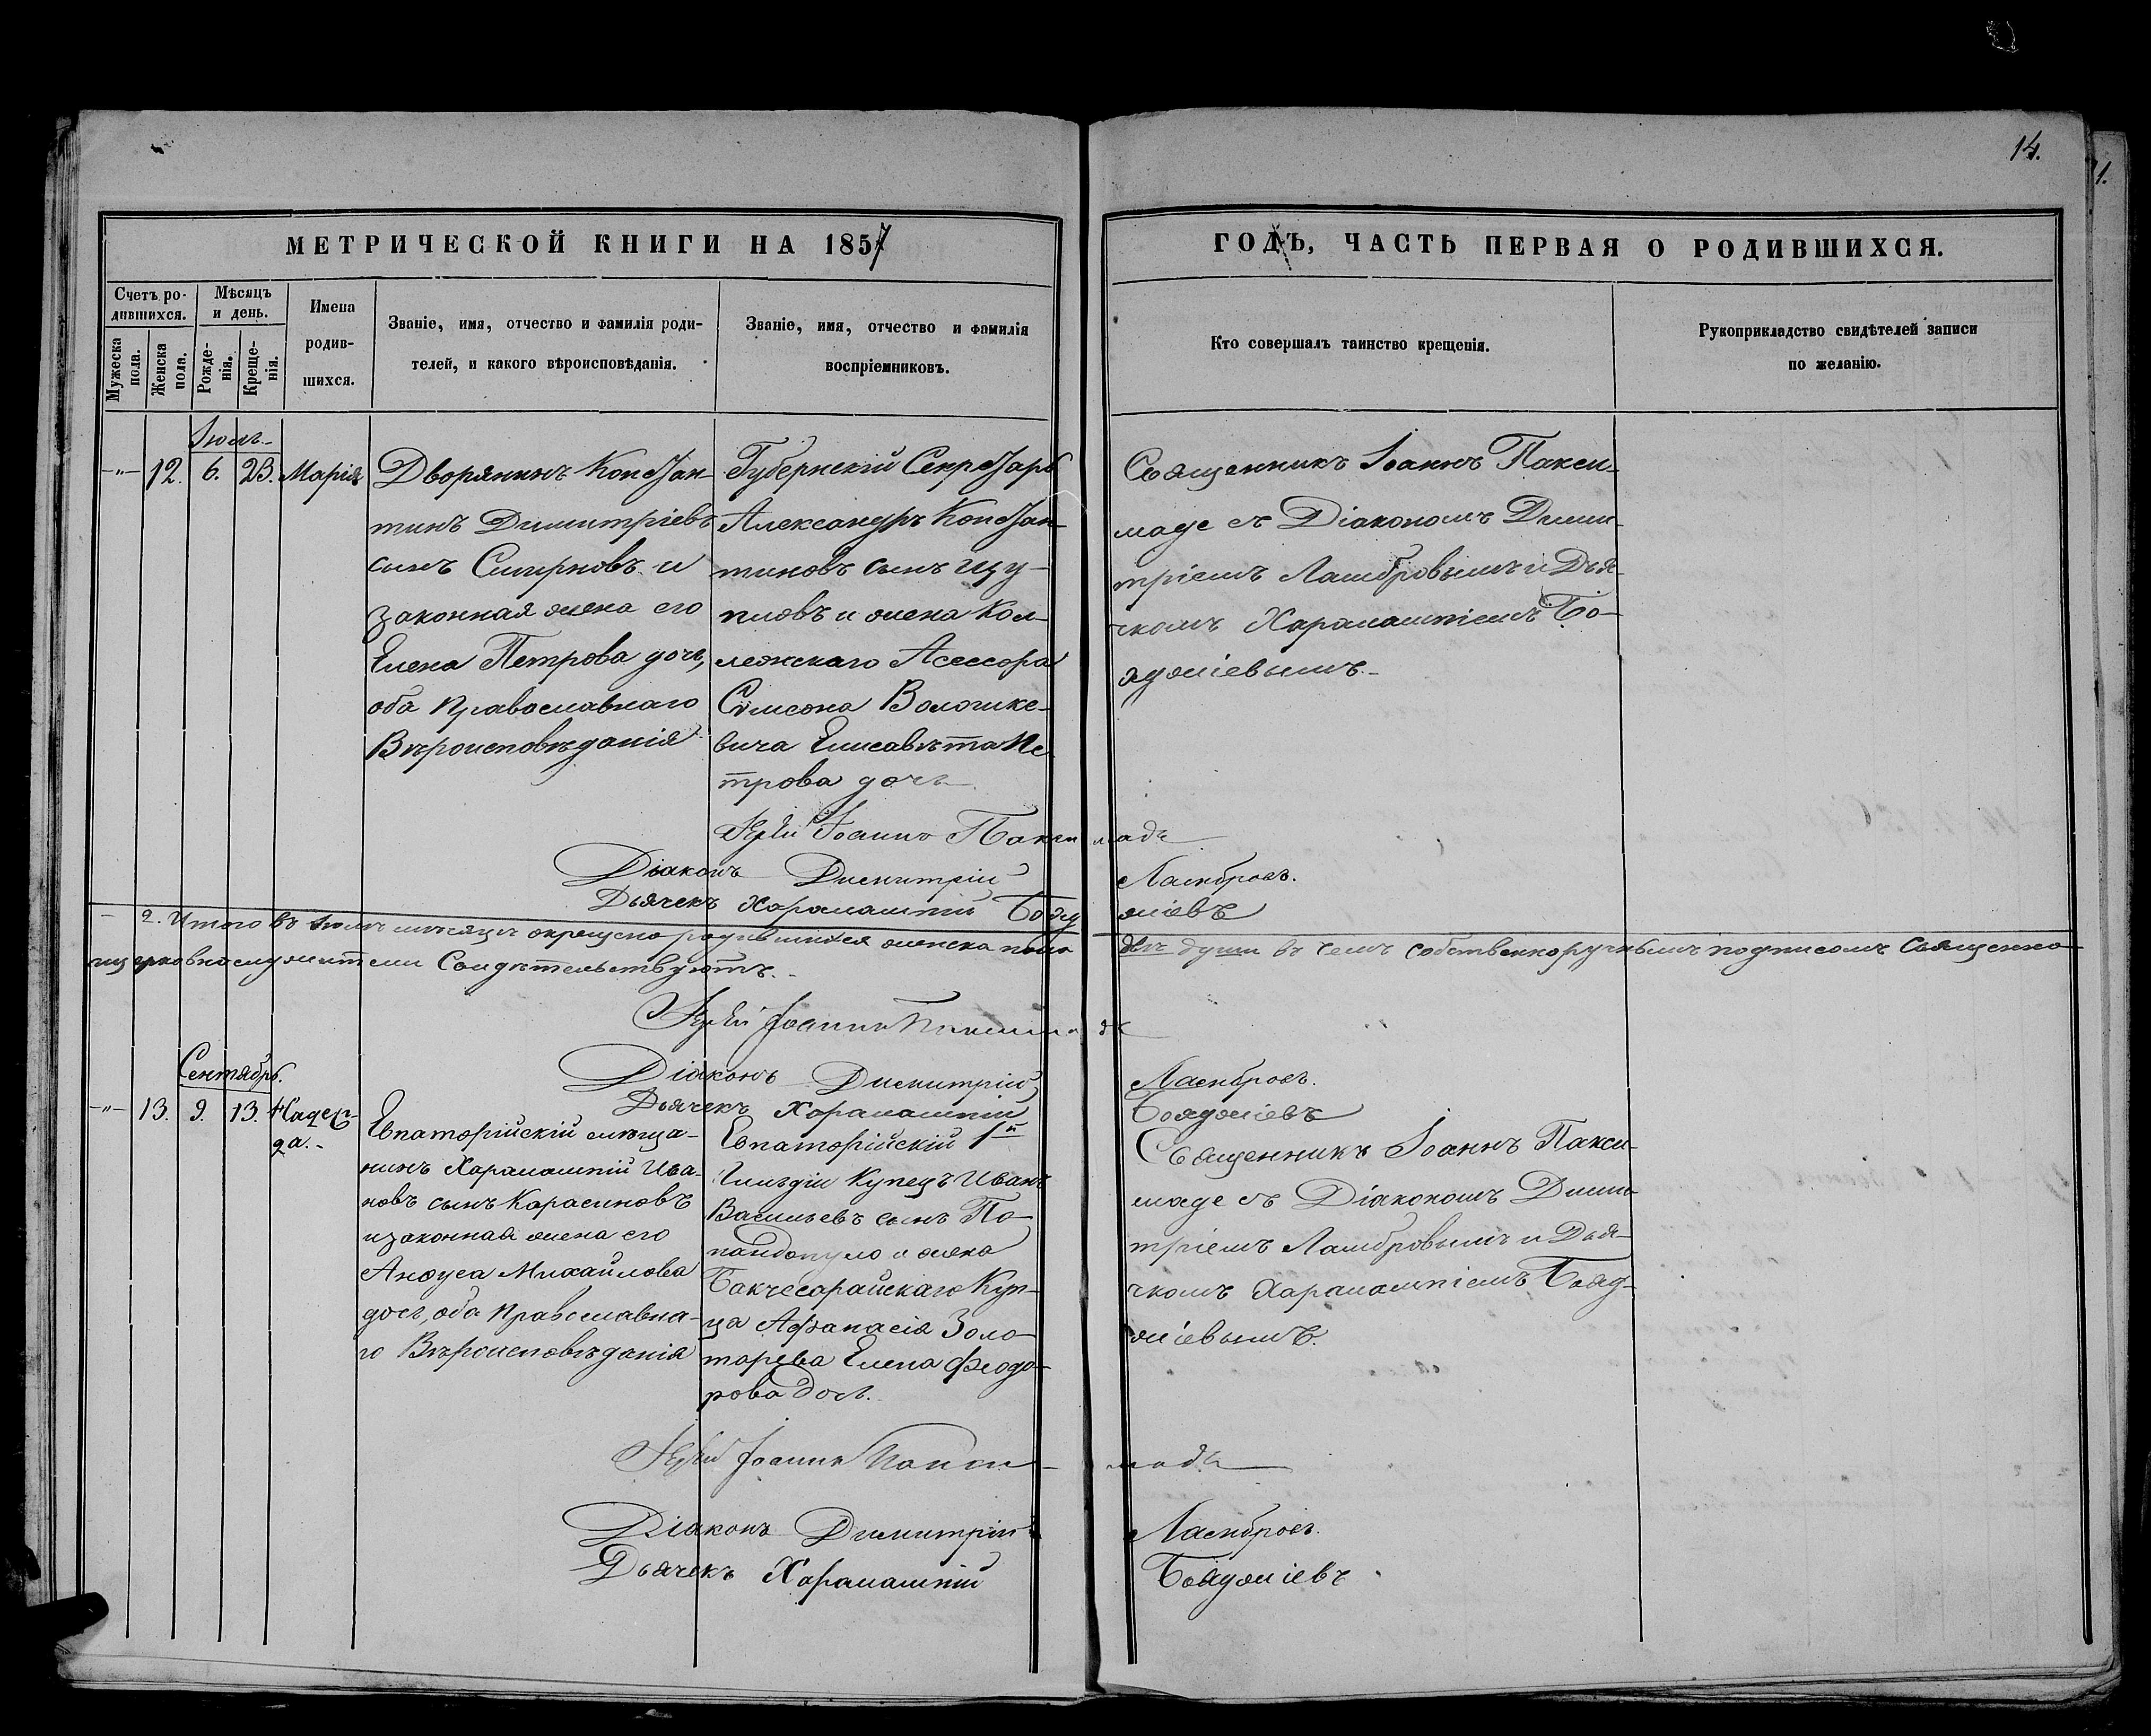 14.
1.
МЕТРИЧЕСКОЙ КНИГИ НА 1857
ГОДЪ, ЧАСТЬ ПЕРВАЯ О РОДИВШИХСЯ.
Счетъ ро-
дившихся.
Мужеска
пола.
Женска
пола.
Мѣсяцъ
и день.
Рожде-
нія.
Креще-
нія.
Имена
родив-
шихся.
Званіе, имя, отчество и фамилія роди-
телей, и какого вѣроисповѣданія.
Званіе, имя, отчество и фамилія
воспріемниковъ.
Кто совершалъ таинство крещенія.
Рукоприкладство свидѣтелей записи
по желанію.
Іюль
-"- 12. 6. 23. Марія
Дворянинъ Констан-
тинъ Димитріевъ
сынъ Смирновъ и
законная жена его
Елена Петрова дочь,
оба Православнаго
Вѣроисповѣданія
Губернскій Секретарь
Александръ Констан-
тиновъ сынъ
и жена Кол-
лежскаго Асессора
Симеона
вича Елисавета Пе-
трова дочь
Священникъ Іоаннъ Пакси-
маде съ Діакономъ Дими-
тріемъ Ламбровымъ и Дья-
чкомъ Харалампіемъ Бо-
яджіевымъ.
Іерей Іоаннъ Паксимаде
Діаконъ Димитрій Ламбровъ.
Дьячекъ Харалампій Бояджіевъ
- 2. Итого въ Іюлѣ мѣсяцѣ окрещено родившихся женска пола двѣ души въ чемъ собственноручнымъ подписомъ Священно
церковнослужители Свидѣтельствуютъ.
Іерей Іоаннъ Паксимаде
Діаконъ Димитрій Ламбровъ.
Дьячекъ Харалампій Бояджіевъ
Сентябрь.
-"- 13. 9. 13. Надеж-
да.
Евпаторійскій мѣща-
нинъ Харалампій Ива-
новъ сынъ Карасиновъ
и законная жена его
Михайлова
дочь, оба Православна-
го Вѣроисповѣданія
Евпаторійскій 1й
Гильдіи Купецъ Иванъ
Васильевъ сынъ По-
пандопуло и жена
Бакчесарайскаго Куп-
ца Афанасія Золо-
тарева Елена Феодо-
рова дочь.
Священникъ Іоаннъ Пакси-
маде съ Діакономъ Дими-
тріемъ Ламбровымъ и Дья-
чкомъ Харалампіемъ Бояд-
жіевымъ.
Іерей Іоаннъ Паксимаде
Діаконъ Димитрій Ламбровъ.
Дьячекъ Харалампій Бояджіевъ